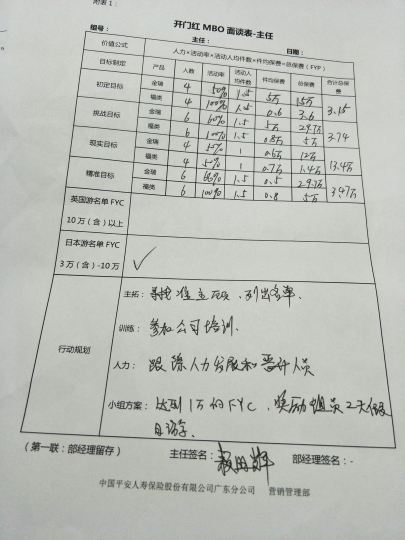 附表1：
开门红 MBO 面谈表-主任
组号： 主任： 日期：
价值公式 人力×活动率×活动人均件数×件均保费=总保费（FYP）
目标制定 产品 人数 活动率 活动人均件数 件均保费 总保费 合计总保费
初定目标 金瑞 4 50% 1.5 5万 15万 3.15
福类 4 100% 1.5 0.6 3.6
挑战目标 金瑞 6 60% 1.5 5万 29.7万 3.74
福类 6 100% 1.5 5万
现实目标 金瑞 4 1 12万 13.4万
福类 4 5% 1 0.7万 1.4万
精准目标 金瑞 6 66% 1.5 0.5 29.7万 3.47万
福类 6 100% 1.5 0.8 5万
英国游名单 FYC
10 万（含）以上
日本游名单 FYC
3 万（含）-10万 ✓
行动规划
主拓： 准主顾，列出名单．
训练： 参加公司培训．
人力： 跟踪人力发展和晋升人员
小组方案： 达到1万的FYC，奖励组员2天
日游．
（第一联：部经理留存） 主任签名： 部经理签名：-
中国平安人寿保险股份有限公司广东分公司 营销管理部